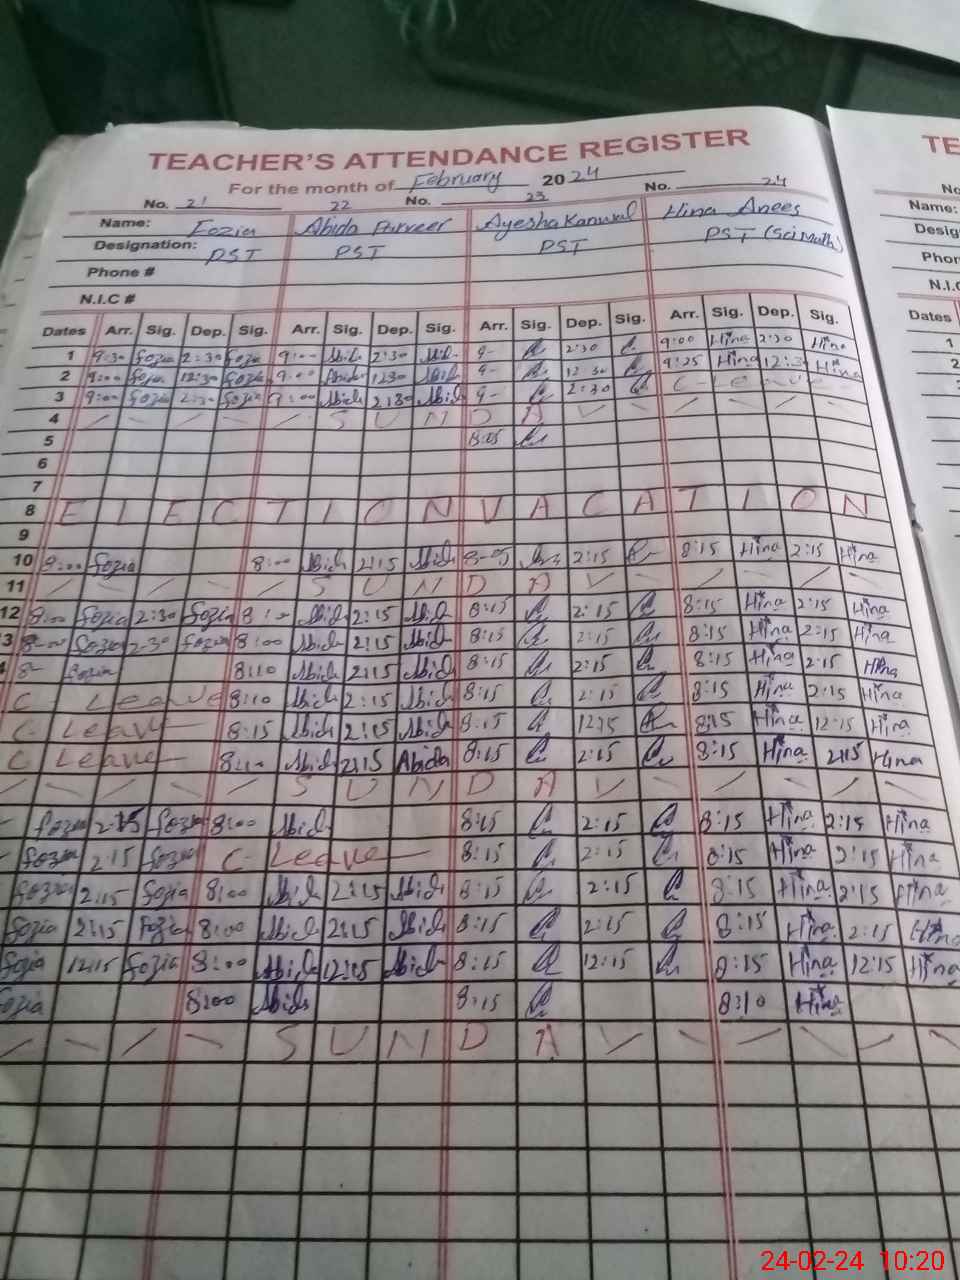 TEACHER'S ATTENDANCE REGISTER
For the month of February 2024
No. 21 22 No. 23 No. 24
Name: Fozia Abida Parveen Ayesha Kanwal Hina Anees
Designation: PST PST PST PST (Sci Math)
Phone #
N.I.C #
Dates Arr. Sig. Dep. Sig. Arr. Sig. Dep. Sig. Arr. Sig. Dep. Sig. Arr. Sig. Dep. Sig.
1 9:30 fozia 2:30 fozia 9:00 Abida 2:30 Abida 9- 2:30 9:00 Hina 2:30 Hina
2 9:00 fozia 12:30 fozia 9:00 Abida 1230 Abida 9- 12 30 9:25 Hina 12:30 Hina
3 9:00 fozia 2:30 fozia 9:00 Abida 2:30 Abida 9- 2:30 C-Leave
4 SUNDAY
5 8:05
6
7
8 ELECTION VACATION
9
10 8:00 fozia 8:00 Abida 2:15 Abida 8-05 2:15 8:15 Hina 2:15 Hina
11 SUNDAY
12 8:00 fozia 2:30 fozia 8:00 Abida 2:15 Abida 8:15 2:15 8:15 Hina 2:15 Hina
3 8-00 fozia 2-30 fozia 8:00 Abida 2:15 Abida 8:15 2:15 8:15 Hina 2:15 Hina
4 8- fozia 8:10 Abida 2:15 Abida 8:15 2:15 8:15 Hina 2:15 Hina
C- Leave 8:10 Abida 2:15 Abida 8:15 2:15 8:15 Hina 2:15 Hina
C- Leave 8:15 Abida 2:15 Abida 8:15 12:15 8:15 Hina 12:15 Hina
C Leave 8:10 Abida 2:15 Abida 8:15 2:15 8:15 Hina 2:15 Hina
SUNDAY
fozia 2:15 fozia 8:00 Abida 8:15 2:15 8:15 Hina 2:15 Hina
fozia 2:15 fozia C-Leave 8:15 2:15 8:15 Hina 2:15 Hina
fozia 2:15 fozia 8:00 Abida 2:15 Abida 8:15 2:15 8:15 Hina 2:15 Hina
fozia 2:15 fozia 8:00 Abida 2:15 Abida 8:15 2:15 8:15 Hina 2:15 Hina
fozia 12:15 fozia 8:00 Abida 12:15 Abida 8:15 12:15 8:15 Hina 12:15 Hina
fozia 8:00 Abida 8:15 8:10 Hina
SUNDAY
TE
No
Name:
Desig
Phon
N.I.C
Dates
1
2
3
4
24-02-24 10:20